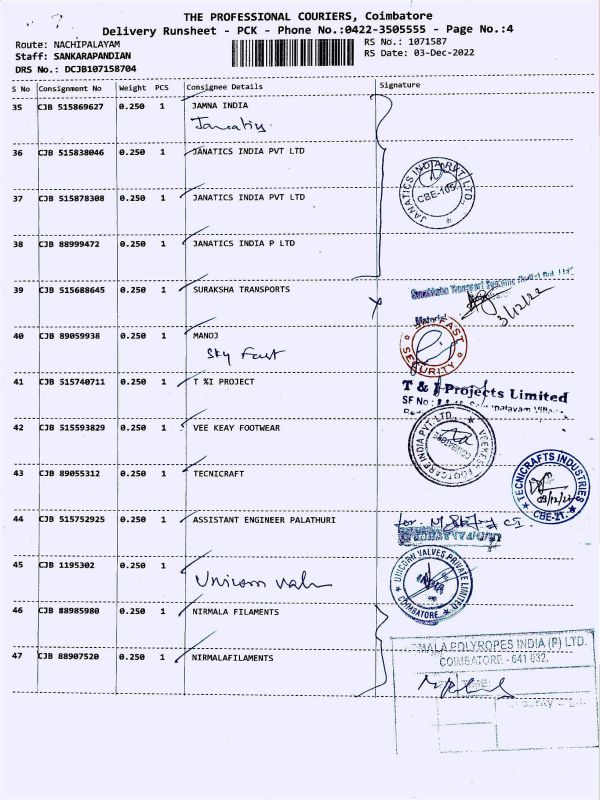 THE PROFESSIONAL COURIERS, Coimbatore
Delivery Runsheet - PCK - Phone No.:0422-3505555 - Page No.:4
Route: NACHIPALAYAM
RS No.: 1071587
Staff: SANKARAPANDIAN
RS Date: 03-Dec-2022
DRS No.: DCJB107158704
S No Consignment No Weight PCS Consignee Details Signature
35 CJB 515869627 0.250 1 JAMNA INDIA
36 CJB 515838046 0.250 1 JANATICS INDIA PVT LTD
JANATICS INDIA PVT LTD
CBE-105
37 CJB 515878308 0.250 1 JANATICS INDIA PVT LTD
38 CJB 88999472 0.250 1 JANATICS INDIA P LTD
39 CJB 515688645 0.250 1 SURAKSHA TRANSPORTS
3/12/22
40 CJB 89059938 0.250 1 MANOJ
Sky Fast
FAST
SECURITY
41 CJB 515740711 0.250 1 T %I PROJECT
T & I Projects Limited
SF No
42 CJB 515593829 0.250 1 VEE KEAY FOOTWEAR
43 CJB 89055312 0.250 1 TECNICRAFT
TECNICRAFTS INDUSTRIES
CBE-21
44 CJB 515752925 0.250 1 ASSISTANT ENGINEER PALATHURI
45 CJB 1195302 0.250 1
Unicorn valv
UNICORN VALVES PRIVATE LIMITED
COIMBATORE
46 CJB 88985980 0.250 1 NIRMALA FILAMENTS
MALA POLYROPES INDIA (P) LTD.
COIMBATORE - 641 032.
47 CJB 88907520 0.250 1 NIRMALAFILAMENTS